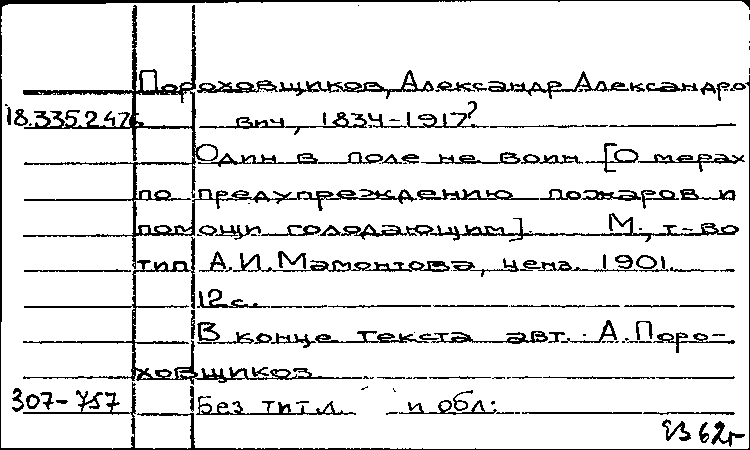 Пороховщиков, Александр Александро
18.335.2476 вич, 1834-1917?
Один в поле не воин [О мерах
по предупреждению пожаров и
помощи голодающим]. М., т-во
тип. А.И. Мамонтова, ценз. 1901.
12 с.
В конце текста авт.: А. Поро-
ховщиков.
307-757 Без тит. л. и обл.
62г